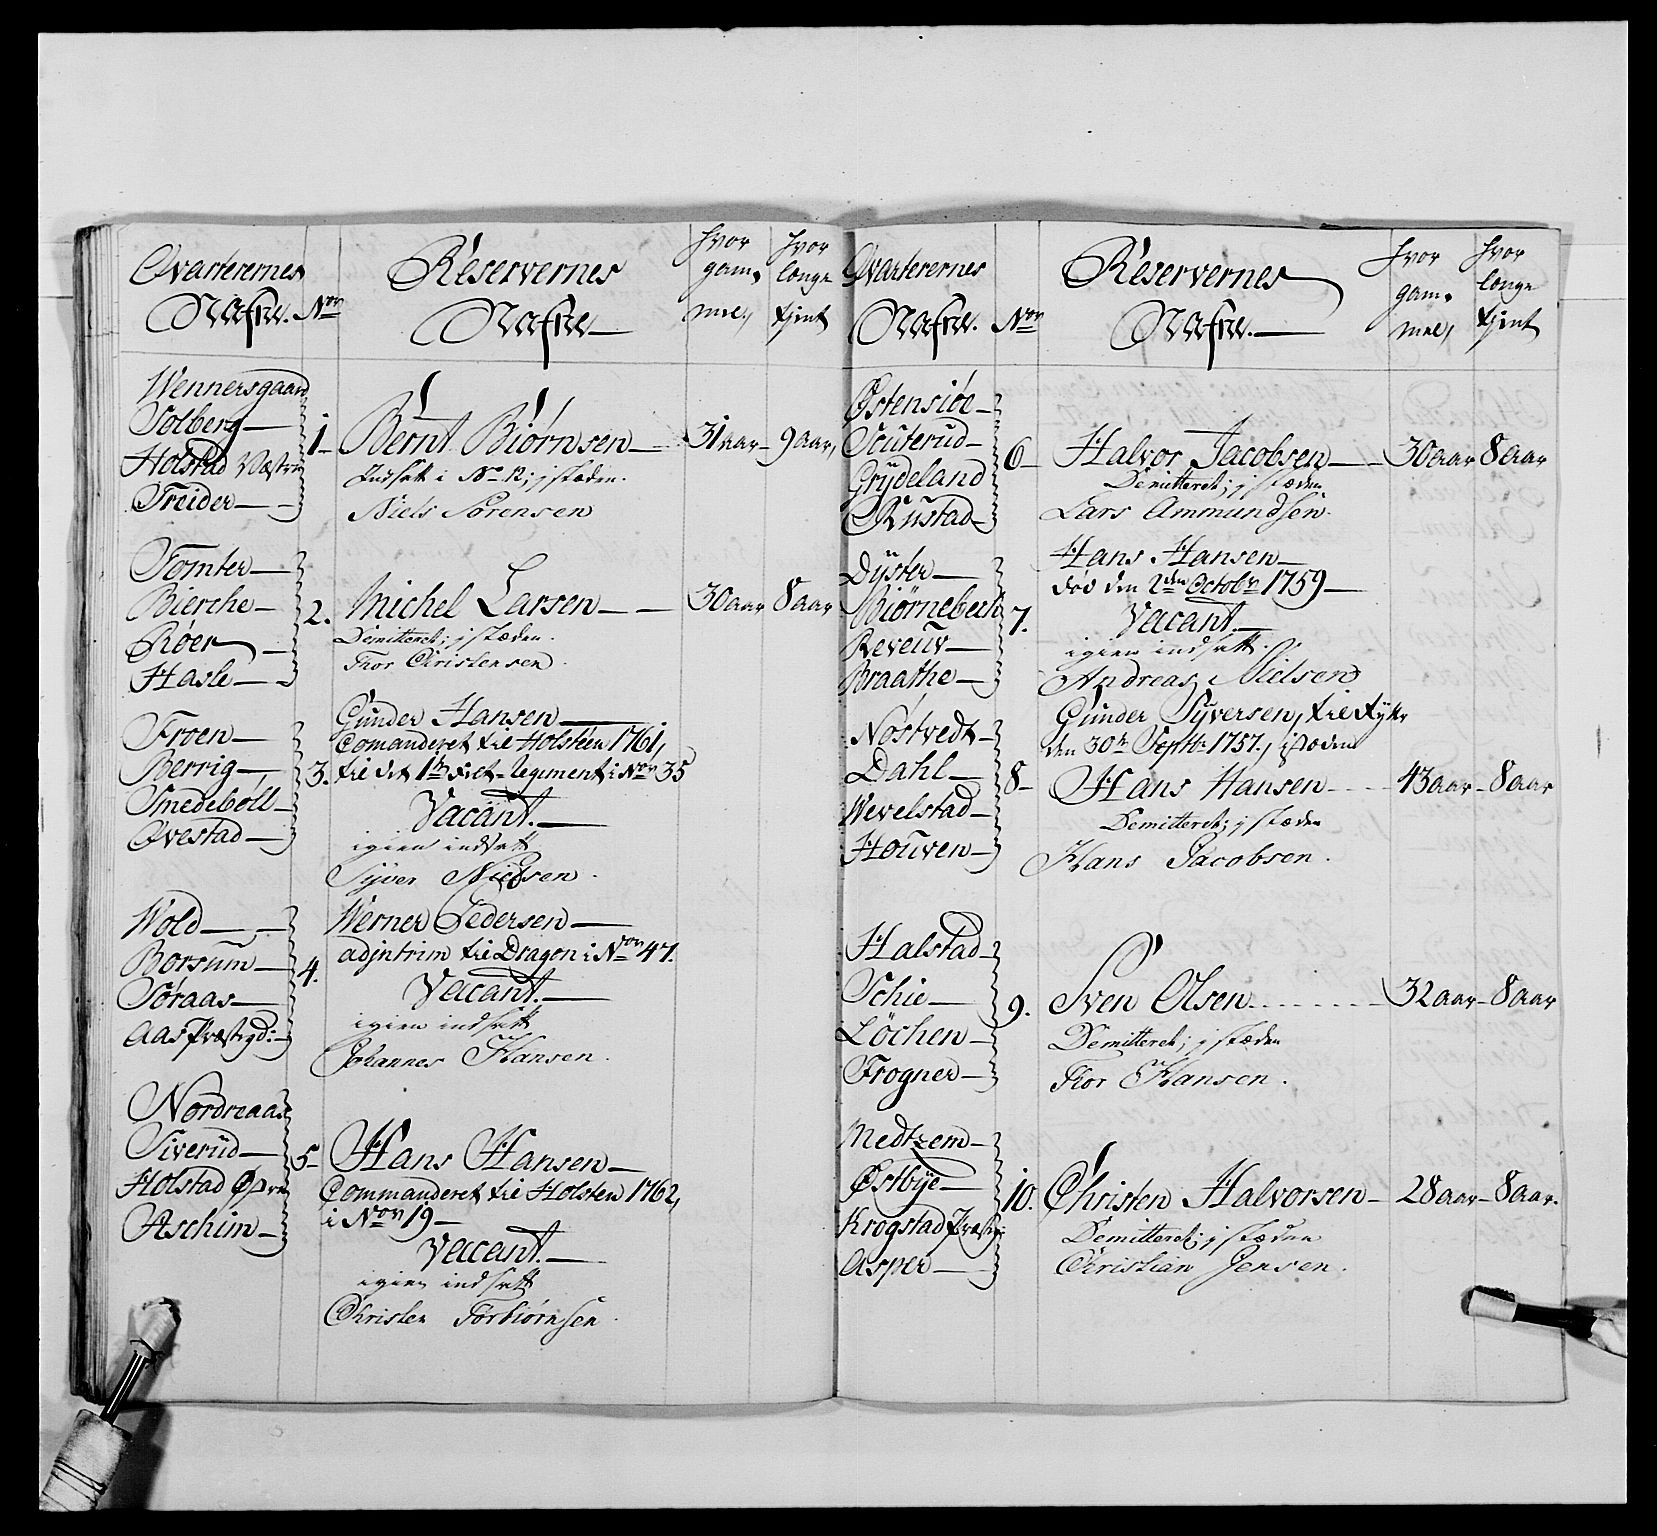 Qvarterernes Nafne. | No | Reservernes Nafne | hvor gam- mel, | hvor længe tjent
Wennersgaard
Solberg
Holstad Væstre
Treider
1. Bernt Biørnsen 31 aar 9 aar,
Indsatt i No 12; j stæden.
Niels Sörensen
Tomter
Bierche
Røer
Hasle
2. Michel Larsen 30 aar 8 aar
Demitteret; j stæden.
Thor Christensen.
Froen
Berrig
Smedeböll
Qvestad
Gunder Hansen
Comanderet til Holsteen 1761,
3. til det 1te Regiment i Non 35
Vacant.
igien indsatt
Syver Nielsen.
Wold
Borsum
Soraas
Aas Præstegd:
Werner Pedersen
4. adjntrim til Dragon i Non 47.
Vacant.
igien indsatt
Johannes Hansen.
Nordreaas
Siverud
Holstad Øvre
Aschim
5 Hans Hansen
Commanderet til Holsten 1762,
i Non 19
Vacant.
igien indsatt
Christen Torbiørnsen.
Qvarterernes Nafne. | Non | Reservernes Nafne. | hvor gam- mel, | hvor længe tjent
Østensiøe
Scuterud
Grydeland
Rustad
6 Halvor Jacobsen 30 aar 8 aar
Demitteret; j stæden
Lars Ammundsen.
Dyster
Biørnebech
Reveuv
Braathe
Hans Hansen
død den 2den Octobr 1759
7. Vacant.
igien indsatt.
Andreas Nielsen
Nostvedt
Dahl
Wevelstad
Houven
Gunder Syversen, til Rytter
den 30te Septbr 1757., i stæden
8 Hans Hansen 43 aar 8 aar
Demitteret; j stæden
Hans Jacobsen.
Halstad
Schie
Löchen
Frogner
9. Sven Olsen 32 aar 8 aar
Demitteret; j stæden
Thor Hansen.
Medtzem
Østbye
Krogstad Præstg:
Asper
10. Christen Halvorsen 28 aar 8 aar.
Demitteret; j stæden
Christian Jensen.